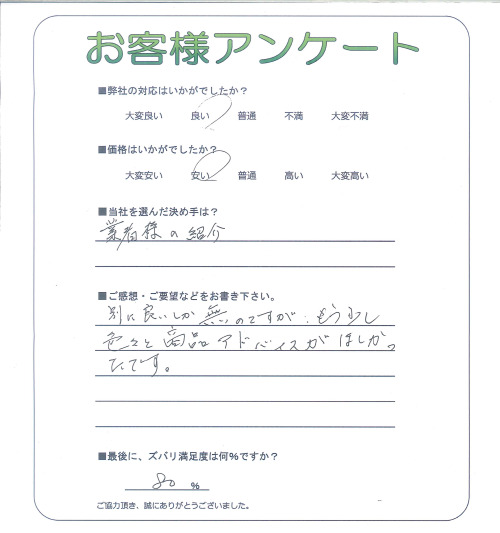 お客様アンケート
■弊社の対応はいかがでしたか？
大変良い 良い 普通 不満 大変不満
■価格はいかがでしたか？
大変安い 安い 普通 高い 大変高い
■当社を選んだ決め手は？
業者様の紹介
■ご感想・ご要望などをお書き下さい。
別に良いしか無いのですが、もう少し
色々と商品アドバイスがほしかっ
たです。
■最後に、ズバリ満足度は何%ですか？
80 %
ご協力頂き、誠にありがとうございました。